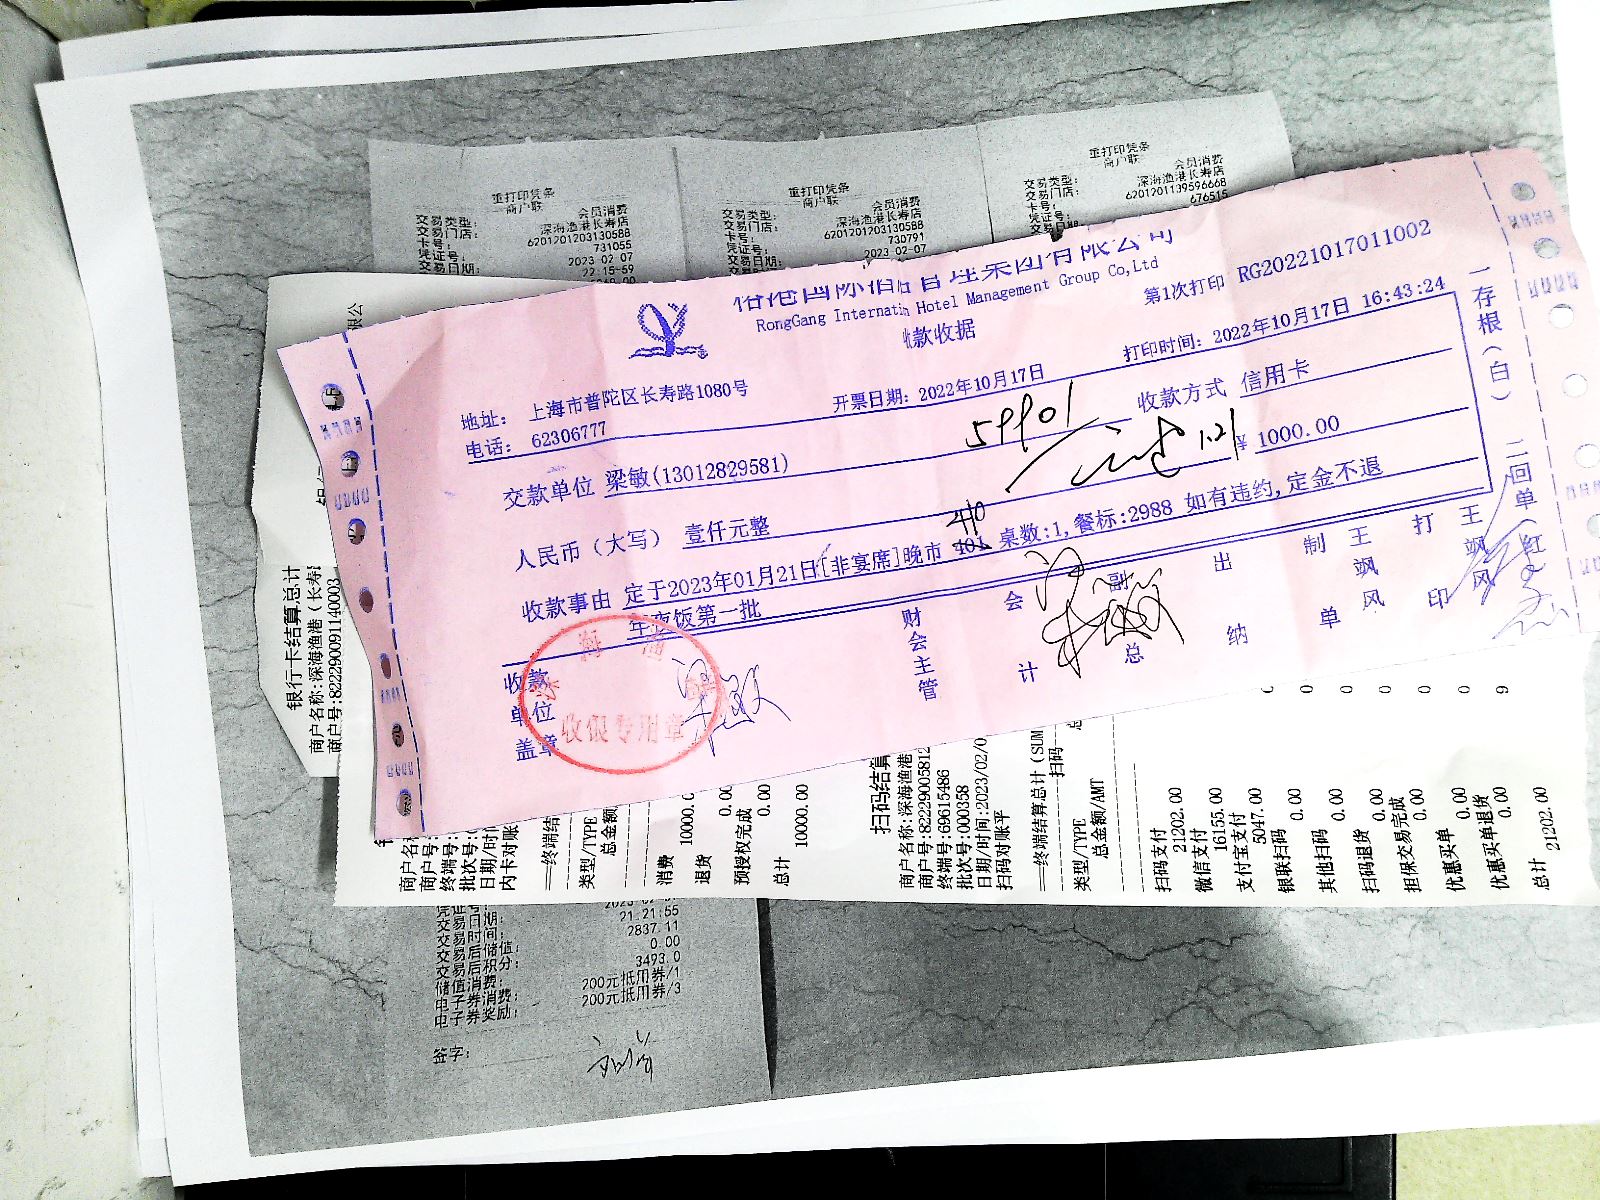 重打印凭条
商户联
交易类型: 会员消费
交易门店: 深海渔港长寿店
卡号: 6201201203130588
凭证号: 731055
交易日期: 2023-02-07
22:15:59
重打印凭条
商户联
交易类型: 会员消费
交易门店: 深海渔港长寿店
卡号: 6201201203130588
凭证号: 730791
交易日期: 2023-02-07
重打印凭条
商户联
交易类型: 会员消费
交易门店: 深海渔港长寿店
卡号: 6201201139596668
凭证号: 676515
国际酒店管理集团有限公司
RongGang Internatin Hotel Management Group Co,Ltd
款收据
第1次打印 RG20221017011002
地址: 上海市普陀区长寿路1080号
电话: 62306777
开票日期: 2022年10月17日
打印时间: 2022年10月17日 16:43:24
交款单位 梁敏(13012829581)
收款方式 信用卡
59901
1.21
人民币（大写） 壹仟元整
¥ 1000.00
收款事由 定于2023年01月21日[非宴席]晚市 桌数:1,餐标:2988 如有违约,定金不退
410
年夜饭第一批
收款单位盖章
收银专用章
财会主管
会计
副总
出纳
制单
王飒风
打印
王飒风
一存根(白) 二回单(红)
银行卡结算总计
商户名称:深海渔港(长寿
商户号:82229009114003
商户名
商户号
终端号
批次号
日期/时
内卡对账
终端结
类型/TYPE
总金额
消费
10000.0
退货
0.00
预授权完成
0.00
总计
10000.00
扫码结算
商户名称:深海渔港
商户号:82229005812
终端号:69615486
批次号:000358
日期/时间:2023/02/0
扫码对账平
终端结算总计(SUM
扫码
类型/TYPE
总金额/AMT
扫码支付
21202.00
微信支付
16155.00
支付宝支付
5047.00
银联扫码
0.00
其他扫码
0.00
扫码退货
0.00
担保交易完成
0.00
优惠买单
0.00
优惠买单退货
0.00
总计
21202.00
凭证号
交易日期:
交易时间: 21:21:55
交易后储值: 2837.11
交易后积分: 0.00
储值消费: 3493.0
电子券消费: 200元抵用券/1
电子券奖励: 200元抵用券/3
签字: